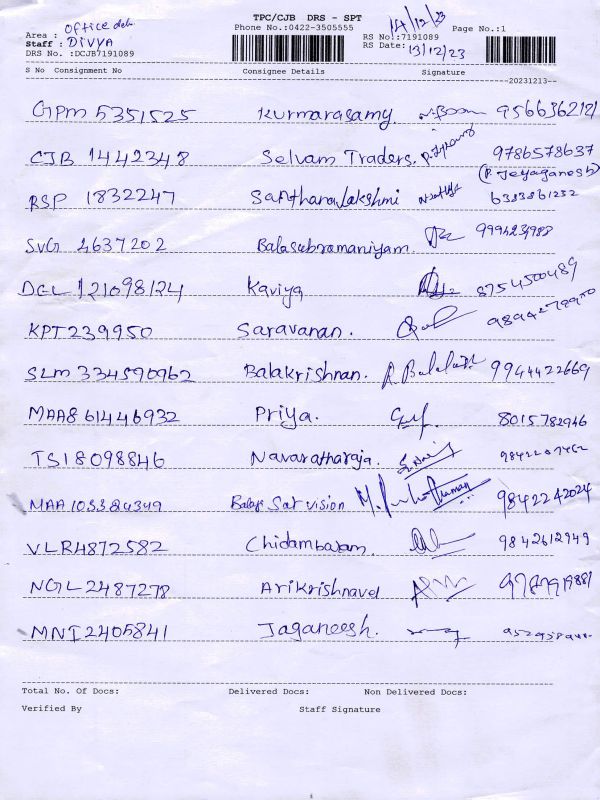 TPC/CJB DRS - SPT
14/12/23
Area : Office del. Phone No.:0422-3505555 Page No.:1
Staff : DIVYA RS No:7191089
DRS No. :DCJB7191089 RS Date: 13/12/23
S No Consignment No Consignee Details Signature
20231213
GPM 5351525 Kurmarasamy 9566362181
CJB 1442348 Selvam Traders. 9786578637
(P. Jeyaganesh)
RSP 1832247 SanthanaLakshmi 6383861232
SVG 4637202 Balasubramaniyam 9994234988
DGL 121098124 Kaviya 8754500489
KPT239950 Saravanan.
SLM 334590962 Balakrishnan. 9944422669
MAA861446932 Priya. 8015782946
TSI8098846 Navaratharaja.
MAA 103384349 Balaji Sat vision 9842242024
VLR4872582 Chidambaram. 9842612949
NGL2487278 Arikrishnavel
MNI2405841 Jaganeesh.
Total No. Of Docs: Delivered Docs: Non Delivered Docs:
Verified By Staff Signature